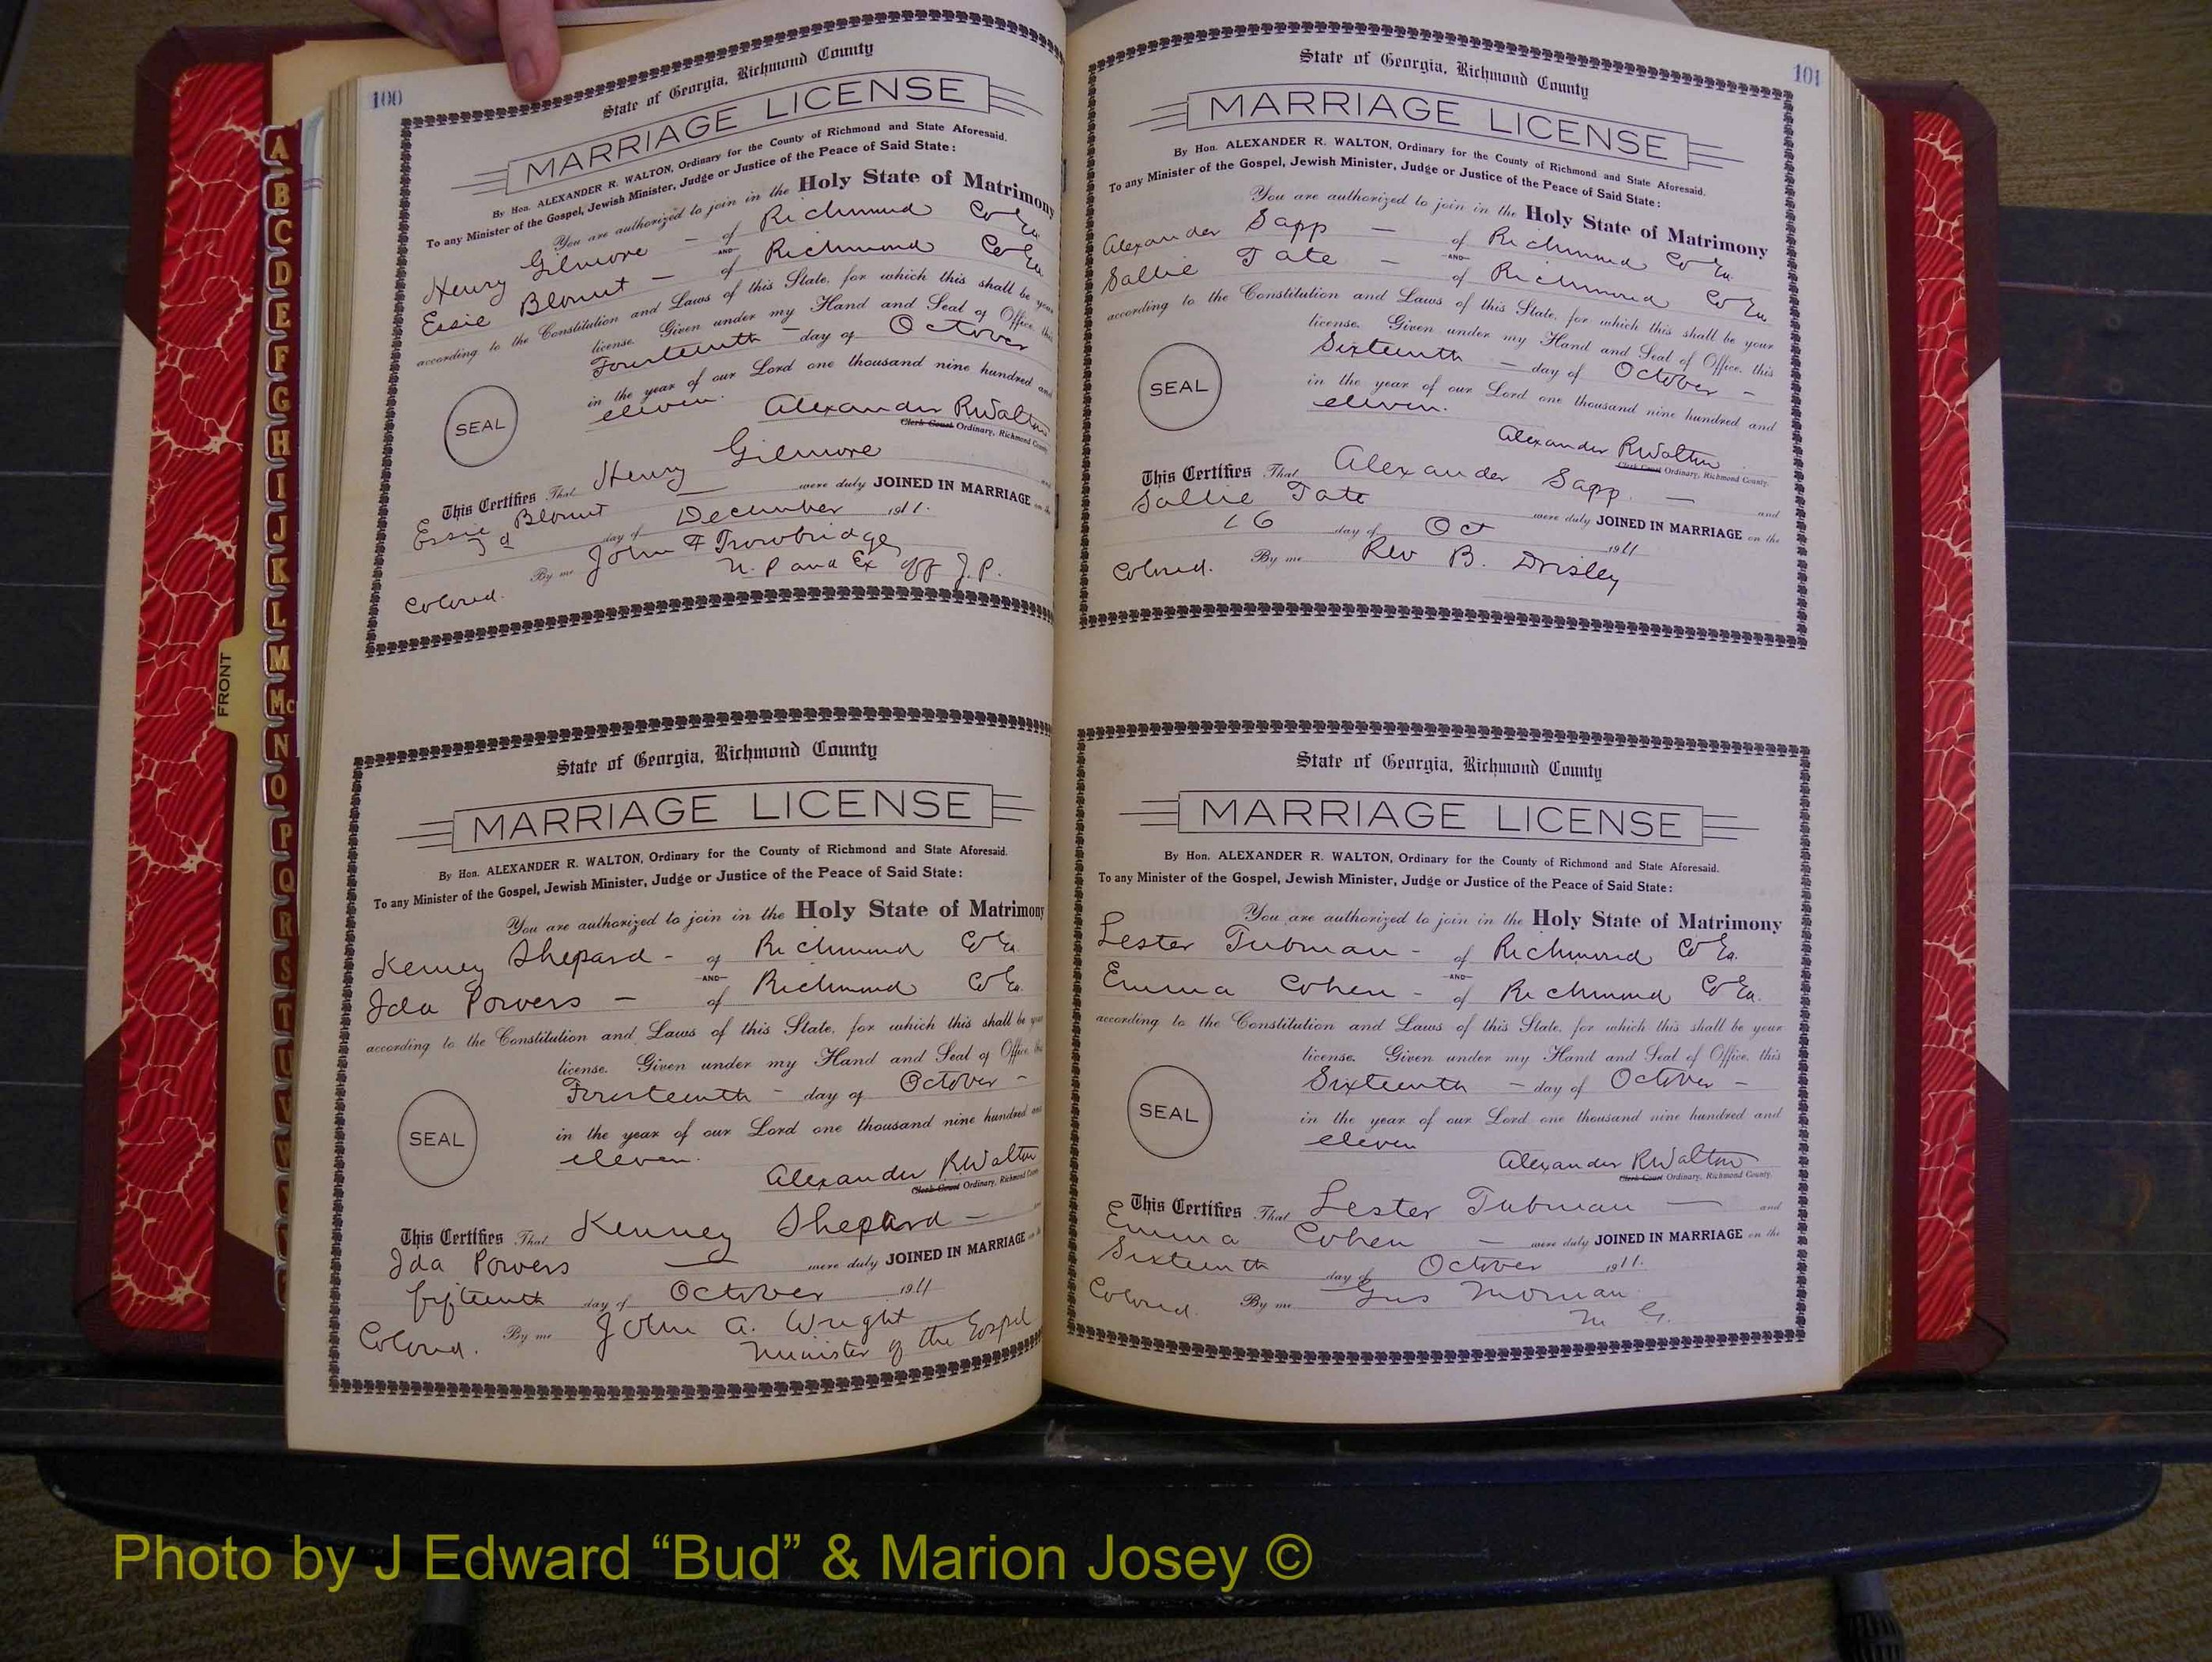 100
State of Georgia, Richmond County
MARRIAGE LICENSE
By Hon. ALEXANDER R. WALTON, Ordinary for the County of Richmond and State Aforesaid.
To any Minister of the Gospel, Jewish Minister, Judge or Justice of the Peace of Said State:
You are authorized to join in the Holy State of Matrimony
Henry Gilmore - of Richmond Co Ga.
AND
Essie Blount - of Richmond Co Ga
according to the Constitution and Laws of this State, for which this shall be your
license. Given under my Hand and Seal of Office, this
Fourteenth - day of October
in the year of our Lord one thousand nine hundred and
eleven.
SEAL
Alexander R Walton
Clerk Court Ordinary, Richmond County
This Certifies That Henry Gilmore and
Essie Blount - were duly JOINED IN MARRIAGE on the
3d day of December 1911.
By me John F Trowbridge
N. P and Ex off J. P.
Colored.
State of Georgia, Richmond County
MARRIAGE LICENSE
By Hon. ALEXANDER R. WALTON, Ordinary for the County of Richmond and State Aforesaid.
To any Minister of the Gospel, Jewish Minister, Judge or Justice of the Peace of Said State:
You are authorized to join in the Holy State of Matrimony
Kenney Shepard - of Richmond Co Ga.
AND
Ida Powers - of Richmond Co Ga.
according to the Constitution and Laws of this State, for which this shall be your
license. Given under my Hand and Seal of Office, this
Fourteenth - day of October -
in the year of our Lord one thousand nine hundred and
eleven.
SEAL
Alexander R Walton
Clerk Court Ordinary, Richmond County
This Certifies That Kenney Shepard - and
Ida Powers - were duly JOINED IN MARRIAGE on the
fifteenth day of October 1911
Colored. By me John A. Wright
Minister of the Gospel
101
State of Georgia, Richmond County
MARRIAGE LICENSE
By Hon. ALEXANDER R. WALTON, Ordinary for the County of Richmond and State Aforesaid.
To any Minister of the Gospel, Jewish Minister, Judge or Justice of the Peace of Said State:
You are authorized to join in the Holy State of Matrimony
Alexander Sapp - of Richmond Co Ga.
AND
Sallie Tate - of Richmond Co Ga
according to the Constitution and Laws of this State, for which this shall be your
license. Given under my Hand and Seal of Office, this
Sixteenth - day of October -
in the year of our Lord one thousand nine hundred and
eleven.
SEAL
Alexander R Walton
Clerk Court Ordinary, Richmond County.
This Certifies That Alexander Sapp. - and
Sallie Tate were duly JOINED IN MARRIAGE on the
16 day of Oct 1911
Colored. By me Rev B. Drisley
State of Georgia, Richmond County
MARRIAGE LICENSE
By Hon. ALEXANDER R. WALTON, Ordinary for the County of Richmond and State Aforesaid.
To any Minister of the Gospel, Jewish Minister, Judge or Justice of the Peace of Said State:
You are authorized to join in the Holy State of Matrimony
Lester Tubman - of Richmond Co Ga.
AND
Emma Cohen - of Richmond Co Ga.
according to the Constitution and Laws of this State, for which this shall be your
license. Given under my Hand and Seal of Office, this
Sixteenth - day of October -
in the year of our Lord one thousand nine hundred and
eleven
SEAL
Alexander R Walton
Clerk Court Ordinary, Richmond County.
This Certifies That Lester Tubman - and
Emma Cohen - were duly JOINED IN MARRIAGE on the
Sixteenth day of October 1911.
Colored. By me Gus Morman
M G.
FRONT
A
B
C
D
E
F
G
H
I
J
K
L
M
Mc
N
O
P
Q
R
S
T
U
V
Photo by J Edward “Bud” & Marion Josey ©